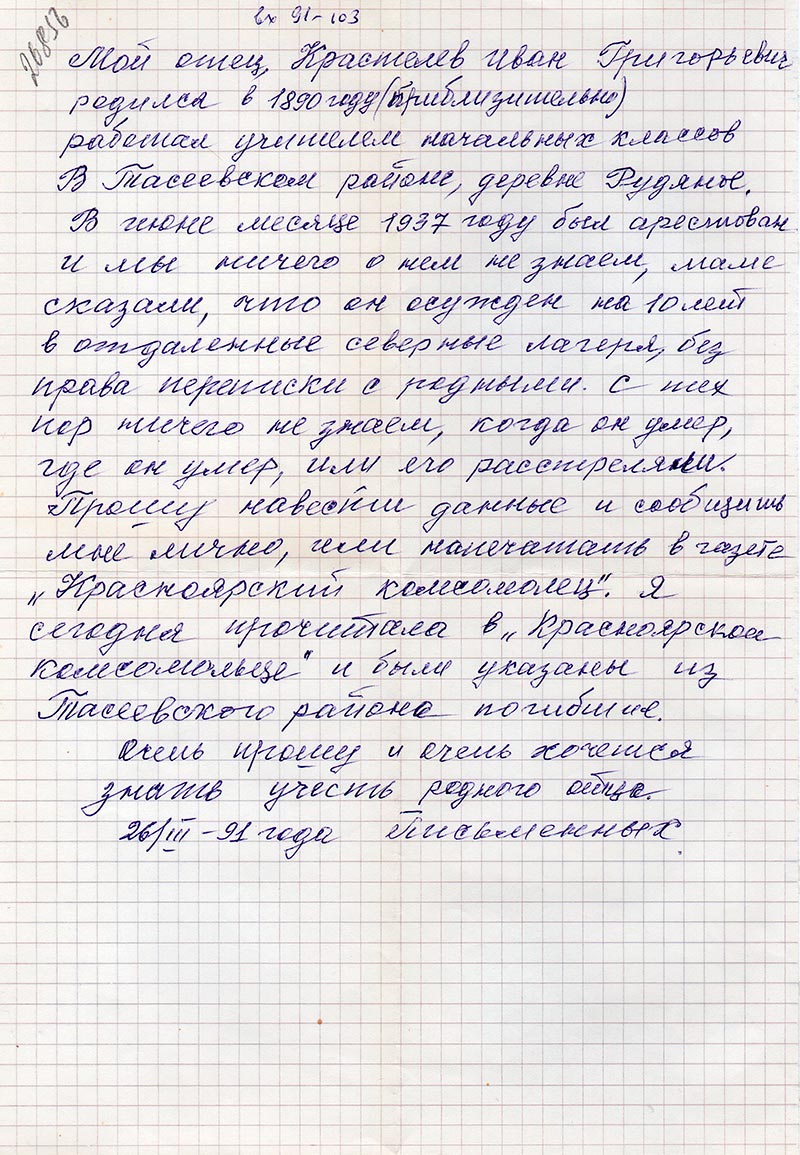 вх 91-103
26856
Мой отец, Крастелев Иван Григорьевич
родился в 1890 году (приблизительно)
работал учителем начальных классов
В Тасеевском районе, деревне Рудяное.
В июне месяце 1937 году был арестован
и мы ничего о нем не знаем, маме
сказали, что он осужден на 10 лет
в отдаленные северные лагеря, без
права переписки с родными. С тех
пор ничего не знаем, когда он умер,
где он умер, или его расстреляли.
Прошу навести данные и сообщить
мне лично, или напечатать в газете
„Красноярский комсомолец". Я
сегодня прочитала в „Красноярском
комсомольце" и были указаны из
Тасеевского района погибшие.
Очень прошу и очень хочется
знать участь родного отца.
26/III-91 года Письменных